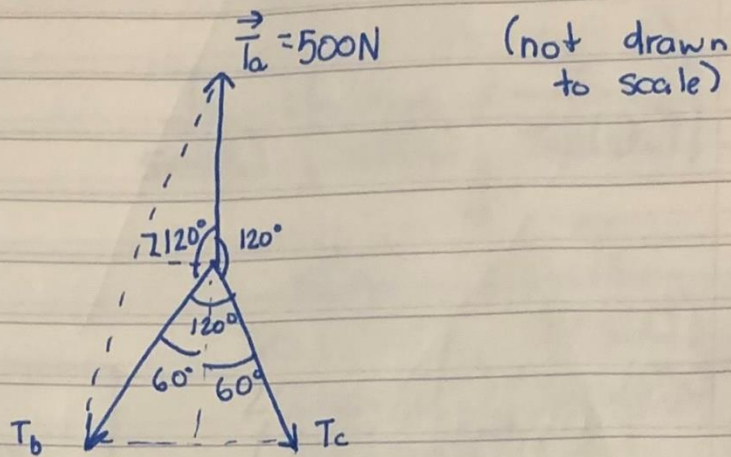 Ta = 500N (not drawn
to scale)
120° 120°
120°
60° 60°
Tb Tc